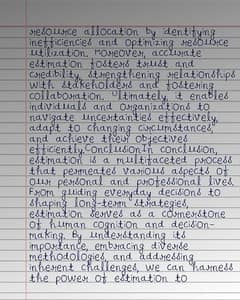 resource allocation by identifying
inefficiencies and optimizing resource
utilization. Moreover, accurate
estimation fosters trust and
credibility, strengthening relationships
with stakeholders and fostering
collaboration. Ultimately, it enables
individuals and organizations to
navigate uncertainties effectively,
adapt to changing circumstances,
and achieve their objectives
efficiently.Conclusion:In conclusion,
estimation is a multifaceted process
that permeates various aspects of
our personal and professional lives.
From guiding everyday decisions to
shaping long-term strategies,
estimation serves as a cornerstone
of human cognition and decision-
making. By understanding its
importance, embracing diverse
methodologies, and addressing
inherent challenges, we can harness
the power of estimation to